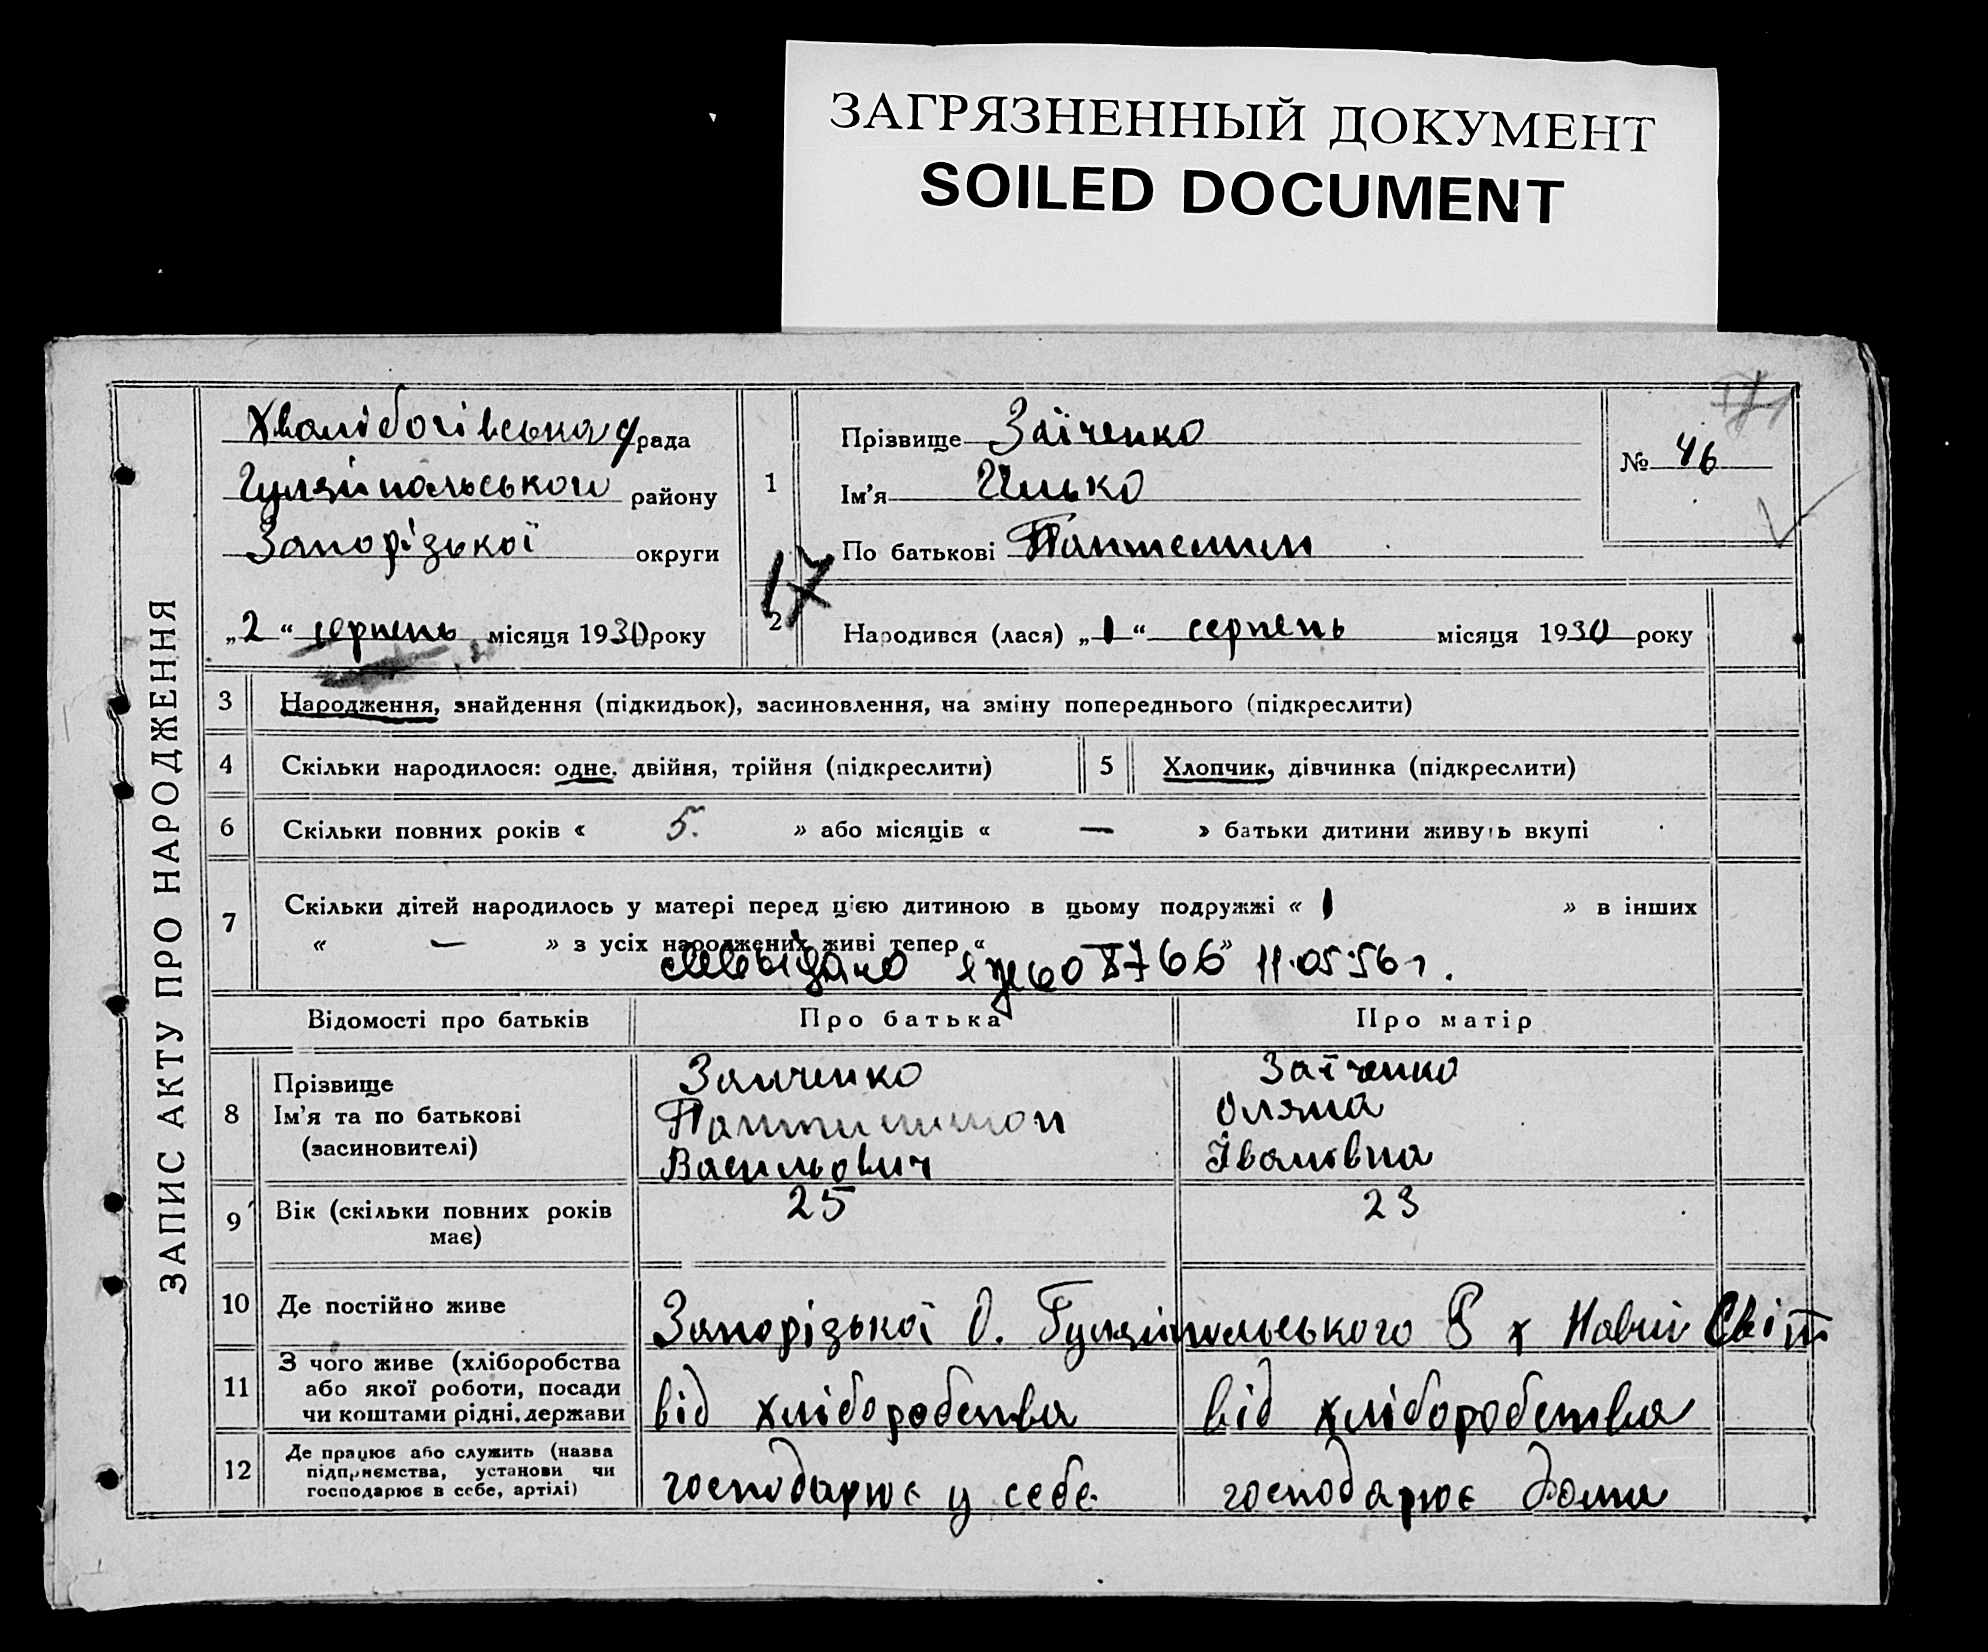 ЗАГРЯЗНЕННЫЙ ДОКУМЕНТ
SOILED DOCUMENT
ЗАПИС АКТУ ПРО НАРОДЖЕННЯ
рада
Гуляйпольського району
Запорізької округи
„2“ серпень місяця 1930 року
1
Прізвище Заїченко
Ім'я Ілько
По батькові
№ 46
17
2
Народився (лася) „1“ серпень місяця 1930 року
3 Народження, знайдення (підкидьок), засиновлення, на зміну попереднього (підкреслити)
4 Скільки народилося: одне, двійня, трійня (підкреслити)
5 Хлопчик, дівчинка (підкреслити)
6 Скільки повних років « 5. » або місяців « — » батьки дитини живуть вкупі
7 Скільки дітей народилось у матері перед цією дитиною в цьому подружжі « 1 » в інших
« — » з усіх народжених живі тепер « »
11.05.56 г.
Відомості про батьків
Про батька
Про матір
8 Прізвище
Ім'я та по батькові
(засиновителі)
Заиченко
Васильович
Заїченко
Оляна
Івановна
9 Вік (скільки повних років
має)
25
23
10 Де постійно живе
Запорізької О. Гуляйпольського Р х Новий Світ
11 З чого живе (хліборобства
або якої роботи, посади
чи коштами рідні, держави
від хліборобства
від хліборобства
12 Де працює або служить (назва
підприємства, установи чи
господарює в себе, артілі)
господарює у себе
господарює дома